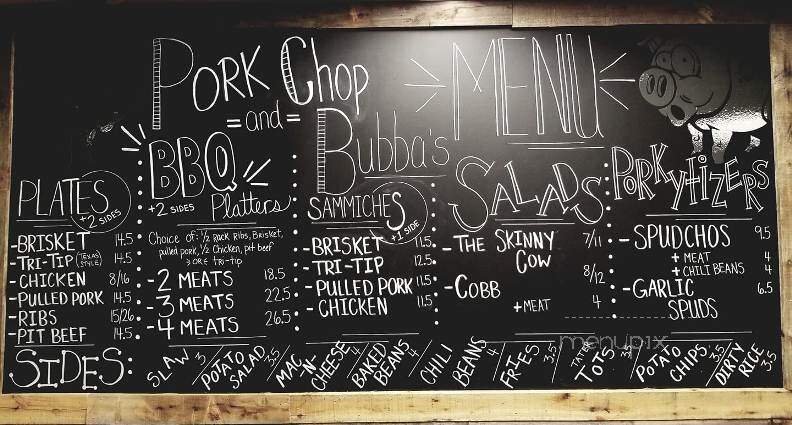 PORK CHOP
=and=
Bubba's
MENU
PLATES
+2 SIDES
-BRISKET 14.5
-TRI-TIP (TEXAS STYLE) 14.5
-CHICKEN 8/16
-PULLED PORK 14.5
-RIBS 15/26
-PIT BEEF 14.5
BBQ
+2 SIDES Platters
Choice of: 1/2 Rack Ribs, Brisket,
pulled pork, 1/2 Chicken, pit beef
OR tri-tip
-2 MEATS 18.5
-3 MEATS 22.5
-4 MEATS 26.5
SAMMICHES
+1 SIDE
-BRISKET 11.5
-TRI-TIP 12.5
-PULLED PORK 11.5
-CHICKEN 11.5
SALADS
-THE SKINNY COW 7/11
-COBB 8/12
+MEAT 4
PORKYTIZERS
-SPUDCHOS 9.5
+MEAT 4
+CHILI BEANS 4
-GARLIC SPUDS 6.5
menupix
SIDES:
SLAW 3 / POTATO SALAD 3.5 / MAC -N- CHEESE 4 / BAKED BEANS 4 / CHILI BEANS 4 / FRIES 3.5 / TATER TOTS / POTATO CHIPS 3.5 / DIRTY RICE 3.5